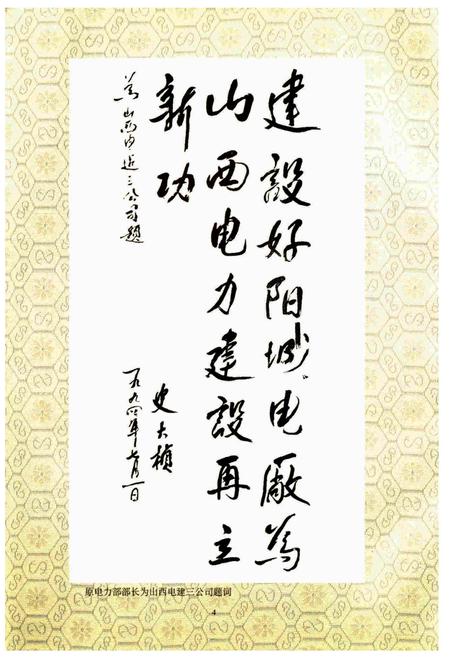 建設好阳城电廠為
山西电力建設再立
新功
為山西电建三公司题
史大桢
一九九四年七月一日
原电力部部长为山西电建三公司题词
4